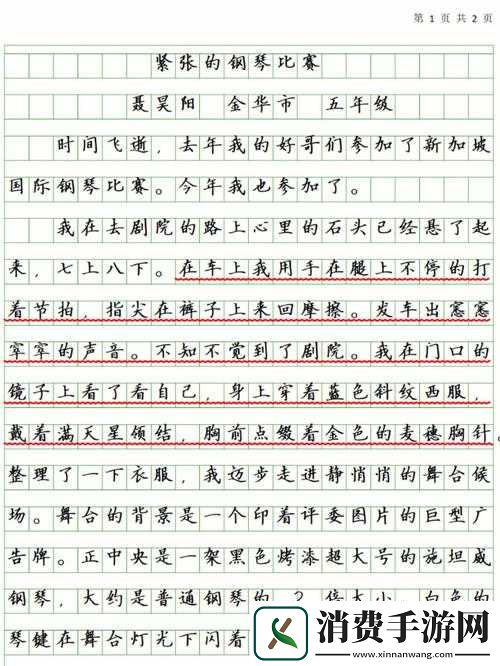 第 1 页 共 2 页
紧张的钢琴比赛
聂昊阳 金华市 五年级
时间飞逝，去年我的好哥们参加了新加坡
国际钢琴比赛。今年我也参加了。
我在去剧院的路上心里的石头已经悬了起
来，七上八下。在车上我用手在腿上不停的打
着节拍，指尖在裤子上来回摩擦。发车出窸窸
窣窣的声音。不知不觉到了剧院。我在门口的
镜子上看了看自己，身上穿着蓝色斜纹西服，
戴着满天星领结，胸前点缀着金色的麦穗胸针。
整理了一下衣服，我迈步走进静悄悄的舞台侯
场。舞台的背景是一个印着评委图片的巨型广
告牌。正中央是一架黑色烤漆超大号的施坦威
钢琴，大约是普通钢琴的 2 倍大小，白色的
琴键在舞台灯光下闪着
消费手游网
www.xinnanwang.com